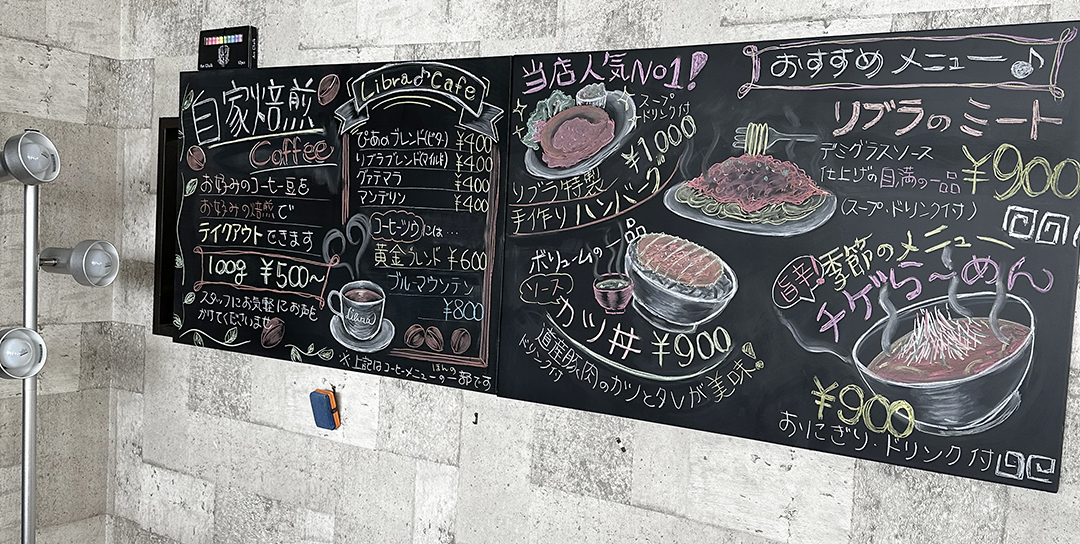 自家焙煎
Coffee
お好みのコーヒー豆を
お好みの焙煎で
テイクアウトできます
100g ¥500~
スタッフにお気軽にお声を
かけてくださいませ
Libra♪Cafe
ぴあのブレンド(ビター) ¥400
リブラブレンド(マイルド) ¥400
グァテマラ ¥400
マンデリン ¥400
コーヒーツウには…
黄金ブレンド ¥600
ブルーマウンテン
¥800
Libra
※上記はコーヒーメニューの一部です
ほんの
当店人気No1!
スープ
ドリンク付
¥1,000
リブラ特製
手作りハンバーグ
ボリュームの一品
ソース
カツ丼 ¥900
道産豚肉のカツとタレが美味!
ドリンク付
おすすめメニュー♪
リブラのミート
デミグラスソース
仕上げの自慢の一品
¥900
(スープ、ドリンク付)
季節のメニュー
旨辛!
チゲら~めん
¥900
おにぎり・ドリンク付